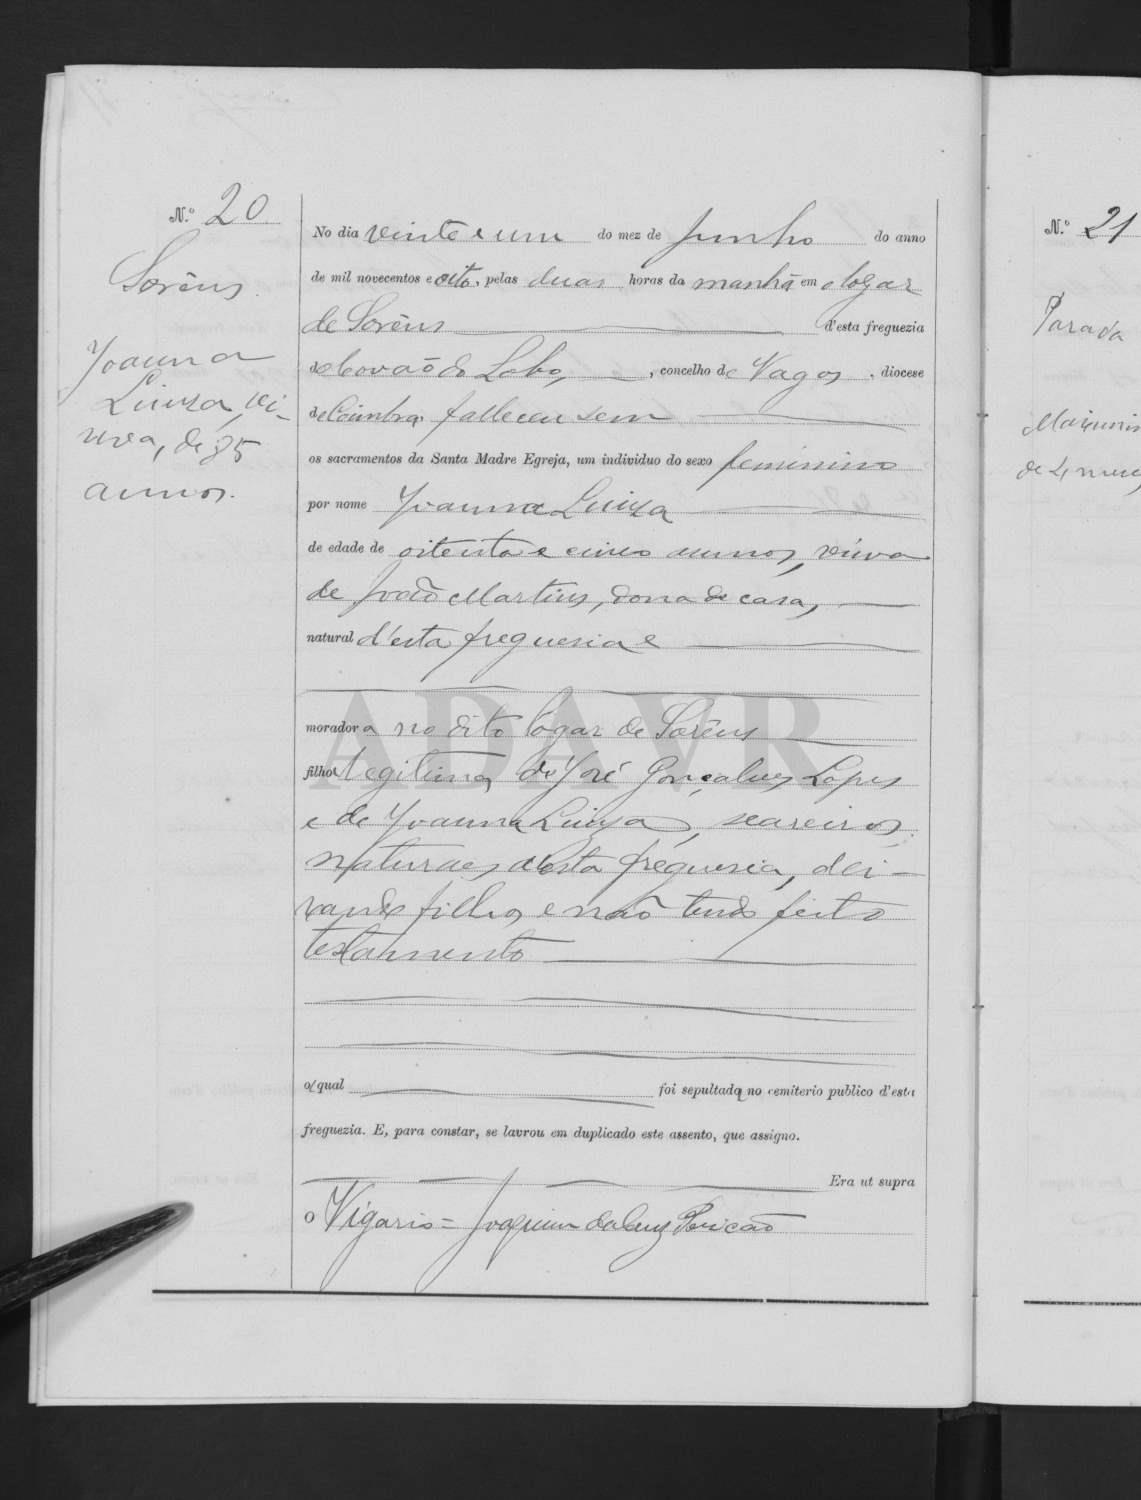 N.º 20
Sorêns.
Joanna
Luiza, vi-
uva, de 85
annos.
No dia vinte e um do mez de Junho do anno
de mil novecentos e oito, pelas duas horas da manhã em o logar
de Sorêns d'esta freguezia
de Covão do Lobo, concelho de Vagos, diocese
de Coimbra, falleceu sem
os sacramentos da Santa Madre Egreja, um individuo do sexo feminino
por nome Joanna Luiza
de edade de oitenta e cinco annos, viuva
de João Martins, dona de casa,
natural d'esta freguesia e
moradora no dito logar de Sorêns
filha legitima de José Gonçalves Lopes
e de Joanna Luiza, seareiros,
naturaes d'esta freguesia, dei-
xando filhos e não tendo feito
testamento
o qual foi sepultada no cemiterio publico d'esta
freguezia. E, para constar, se lavrou em duplicado este assento, que assigno.
Era ut supra
O Vigario = Joaquim da Cruz Pericão
ADAVR
N.º 21
Parada